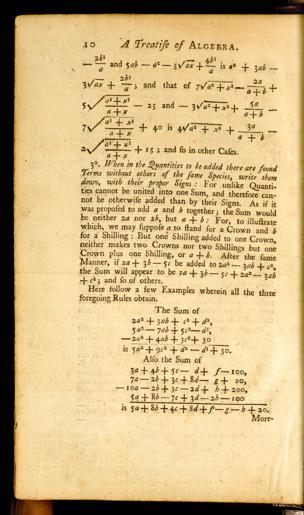 10 A Treatise of ALGEBRA.
— 2b³/a and 5ab — a² — 3√ax + 4b³/a is a² + 3ab —
3√ax + 2b³/a; and that of 7√a² + x² — 2a/a + b +
5√a² + x²/a + x — 25 and — 3√a² + x² + 5a/a + b —
7√a² + x²/a + x + 40 is 4√a² + x² + 3a/a + b —
2√a² + x²/a + x + 15; and so in other Cases.
3°. When in the Quantities to be added there are found
Terms without others of the same Species, write them
down, with their proper Signs: For unlike Quanti-
ties cannot be united into one Sum, and therefore can-
not be otherwise added than by their Signs. As if it
was proposed to add a and b together; the Sum would
be neither 2a nor 2b, but a + b: For, to illustrate
which, we may suppose a to stand for a Crown and b
for a Shilling: But one Shilling added to one Crown,
neither makes two Crowns nor two Shillings but one
Crown plus one Shilling, or a + b. After the same
Manner, if 2a + 3b — 5c be added to 2a² — 3ab + c²,
the Sum will appear to be 2a + 3b — 5c + 2a² — 3ab
+ c²; and so of others.
Here follow a few Examples wherein all the three
foregoing Rules obtain.
The Sum of
2a² + 3ab + c² + d²,
5a² — 7ab + 5c² — d³,
— 2a² + 4ab + 3c² + 30
is 5a² + 9c² + d² — d³ + 30.
Also the Sum of
3a + 4b + 5c — d + f — 100,
7a — 2b + 3c + 8d — g + 20,
— 10a — 2b + 3c — 2d + h + 200,
5a + 8b — 7c + 3d — 2b — 100
is 5a + 8b + 4c + 8d + f — g — b + 20.
More-